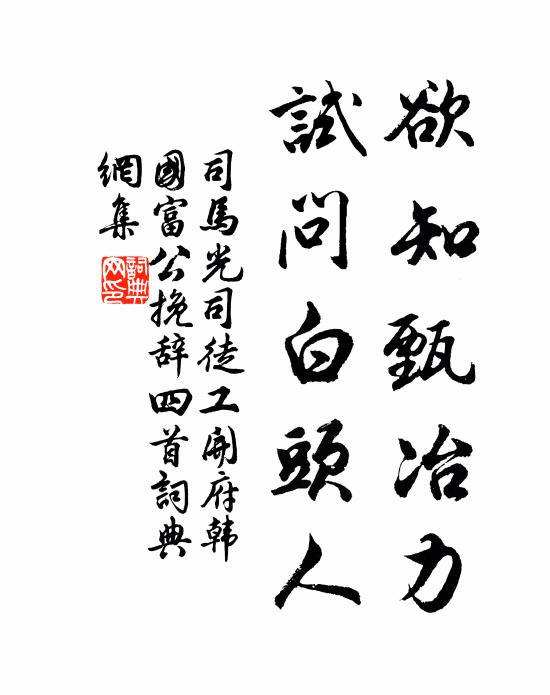 欲知甄冶力
試問白頭人
司馬光司徒工開府韩
國富公挽辞四首詞典
網集
詞典
网印